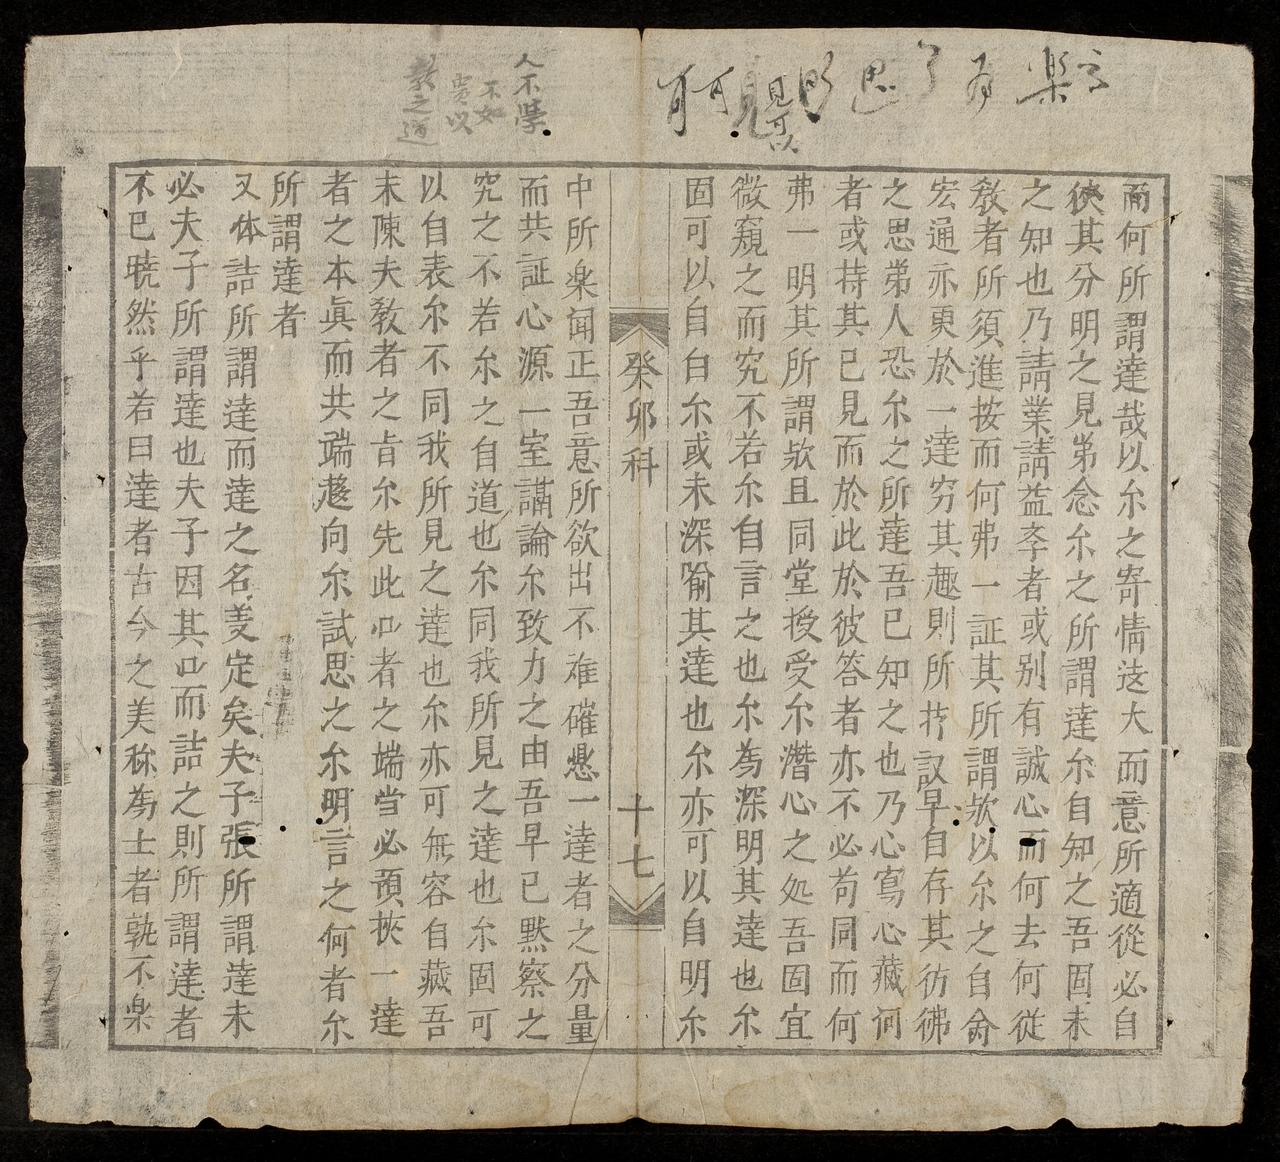 而何所謂達哉以尒之寄情迲大而意所適從必自
俠其分明之見弟念尒之所謂達尒自知之吾固未
之知也乃請業請益斈者或别有誠心而何去何從
教者所須進按而何弗一証其所謂欤以尒之自命
宏通亦更於一達穷其趣則所抃訍早自存其彷彿
之思弟人恐尒之所達吾已知之也乃心寫心藏何
者或持其已見而於此於彼答者亦不必苟同而何
弗一明其所謂欤且同堂授受尒潛心之処吾固宜
微窺之而究不若尒自言之也尒為深明其達也尒
固可以自白尒或未深喻其達也尒亦可以自明尒
癸卯科
十七
中所楽闻正吾意所欲出不难確懸一達者之分量
而共証心源一室講論尒致力之由吾早已默察之
究之不若尒之自道也尒同我所見之達也尒固可
以自表尒不同我所見之達也尒亦可無容自藏吾
末陳夫教者之旨尒先此叩者之端当必預挾一達
者之本眞而共端趍向尒試思之尒明言之何者尒
所謂達者
又体詰所謂達而達之名美定矣夫子張所謂達未
必夫子所謂達也夫子因其叩而詰之則所謂達者
不已晓然乎若曰達者古今之美称為士者孰不楽
人不學
不如
教之道
見可以
思